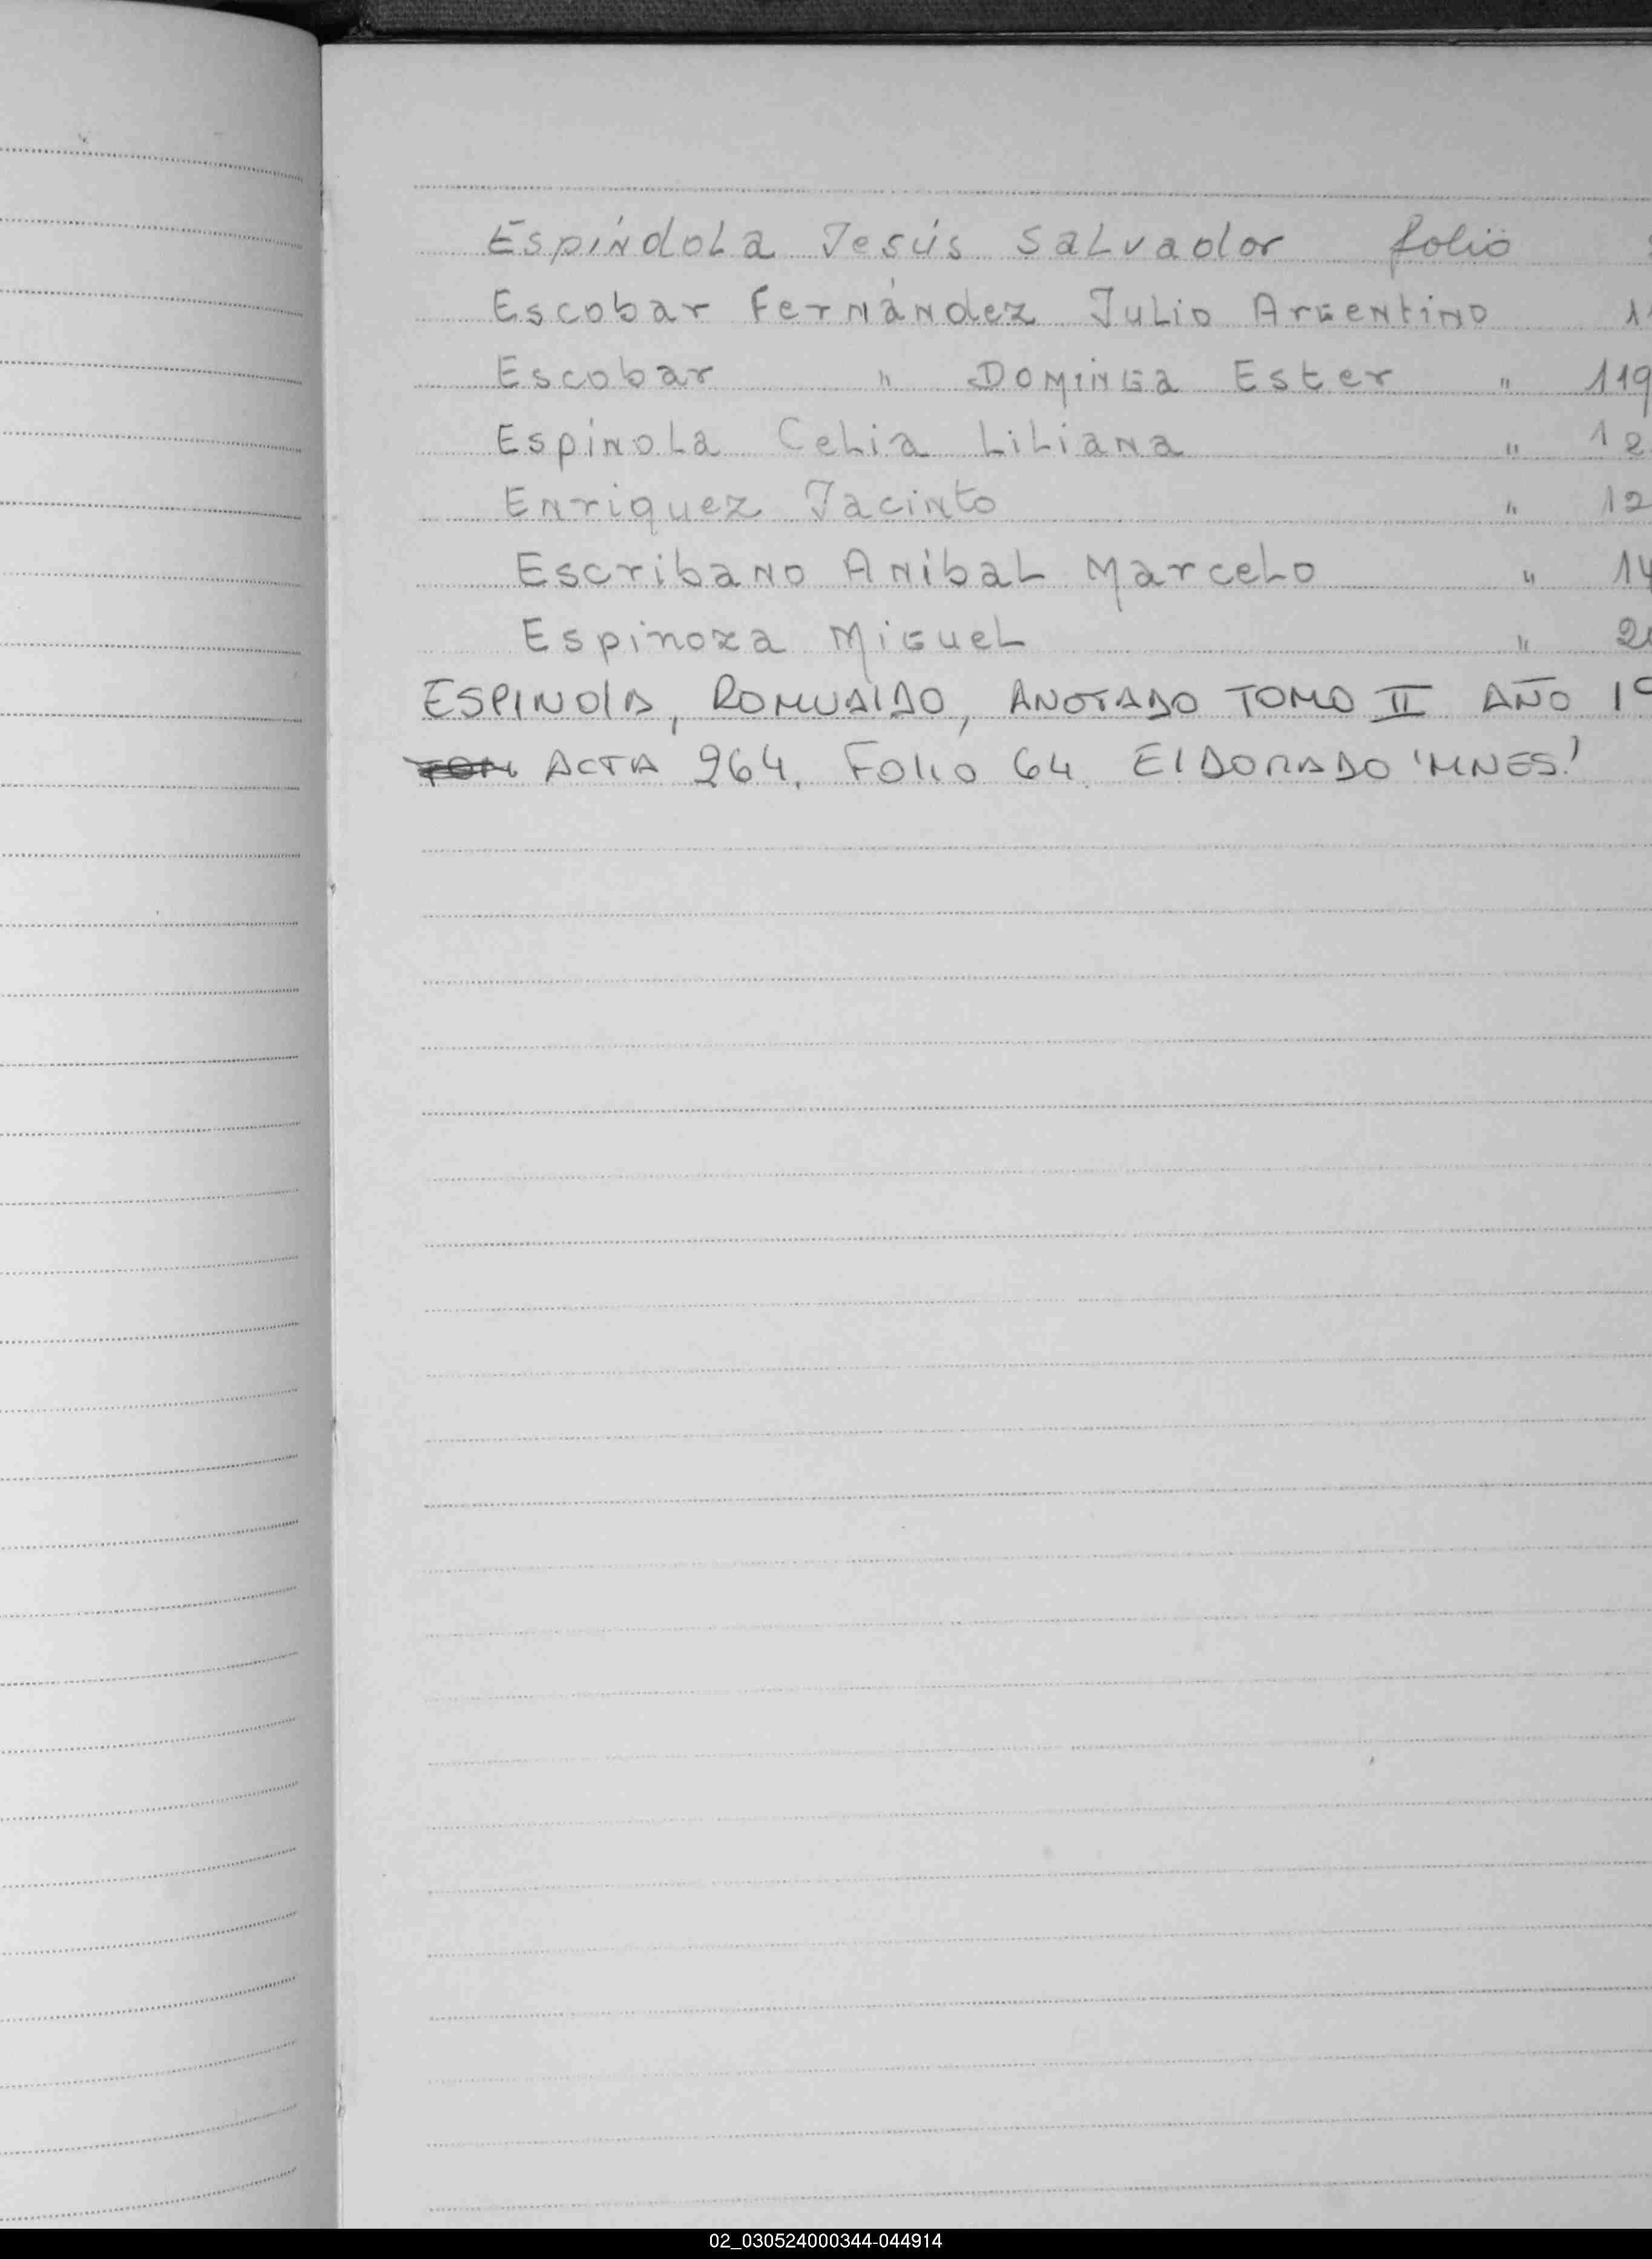 Espíndola Jesús Salvador folio
Escobar Fernández Julio Argentino 1
Escobar " Dominga Ester " 119
Espínola Celia Liliana " 12
Enriquez Jacinto " 12
Escribano Anibal Marcelo " 14
Espinoza Miguel " 2
ESPINOLA, ROMUALDO, ANOTADO TOMO II AÑO 19
ACTA 264, FOLIO 64 ELDORADO 'MNES!
02_030524000344-044914